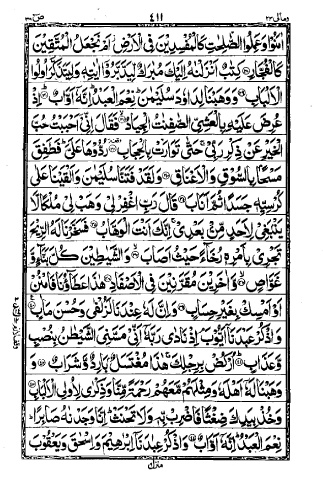 ومالی ۲۳ ۴۱۱ ص ۳۸
اٰمَنُوْا وَعَمِلُوا الصّٰلِحٰتِ كَالْمُفْسِدِيْنَ فِى الْاَرْضِ اَمْ نَجْعَلُ الْمُتَّقِيْنَ
كَالْفُجَّارِ كِتٰبٌ اَنْزَلْنٰهُ اِلَيْكَ مُبٰرَكٌ لِّيَدَّبَّرُوْۤا اٰيٰتِهٖ وَلِيَتَذَكَّرَ اُولُوا
الْاَلْبَابِ وَوَهَبْنَا لِدَاوٗدَ سُلَيْمٰنَ نِعْمَ الْعَبْدُ اِنَّهٗۤ اَوَّابٌ اِذْ
عُرِضَ عَلَيْهِ بِالْعَشِىِّ الصّٰفِنٰتُ الْجِيَادُ فَقَالَ اِنِّىْۤ اَحْبَبْتُ حُبَّ
الْخَيْرِ عَنْ ذِكْرِ رَبِّىْ حَتّٰى تَوَارَتْ بِالْحِجَابِ رُدُّوْهَا عَلَىَّ فَطَفِقَ
مَسْحًاۢ بِالسُّوْقِ وَالْاَعْنَاقِ وَلَقَدْ فَتَنَّا سُلَيْمٰنَ وَاَلْقَيْنَا عَلٰى
كُرْسِيِّهٖ جَسَدًا ثُمَّ اَنَابَ قَالَ رَبِّ اغْفِرْ لِىْ وَهَبْ لِىْ مُلْكًا لَّا
يَنْۢبَغِىْ لِاَحَدٍ مِّنْۢ بَعْدِىْ اِنَّكَ اَنْتَ الْوَهَّابُ فَسَخَّرْنَا لَهُ الرِّيْحَ
تَجْرِىْ بِاَمْرِهٖ رُخَآءً حَيْثُ اَصَابَ وَالشَّيٰطِيْنَ كُلَّ بَنَّآءٍ وَّ
غَوَّاصٍ وَّاٰخَرِيْنَ مُقَرَّنِيْنَ فِى الْاَصْفَادِ هٰذَا عَطَآؤُنَا فَامْنُنْ
اَوْ اَمْسِكْ بِغَيْرِ حِسَابٍ وَاِنَّ لَهٗ عِنْدَنَا لَزُلْفٰى وَحُسْنَ مَاٰبٍ
وَاذْكُرْ عَبْدَنَاۤ اَيُّوْبَ اِذْ نَادٰى رَبَّهٗۤ اَنِّىْ مَسَّنِىَ الشَّيْطٰنُ بِنُصْبٍ
وَّعَذَابٍ اُرْكُضْ بِرِجْلِكَ هٰذَا مُغْتَسَلٌۢ بَارِدٌ وَّشَرَابٌ وَ
وَهَبْنَا لَهٗۤ اَهْلَهٗ وَمِثْلَهُمْ مَّعَهُمْ رَحْمَةً مِّنَّا وَذِكْرٰى لِاُولِى الْاَلْبَابِ
وَخُذْ بِيَدِكَ ضِغْثًا فَاضْرِبْ بِّهٖ وَلَا تَحْنَثْ اِنَّا وَجَدْنٰهُ صَابِرًا
نِعْمَ الْعَبْدُ اِنَّهٗۤ اَوَّابٌ وَاذْكُرْ عِبٰدَنَاۤ اِبْرٰهِيْمَ وَاِسْحٰقَ وَيَعْقُوْبَ
منزل